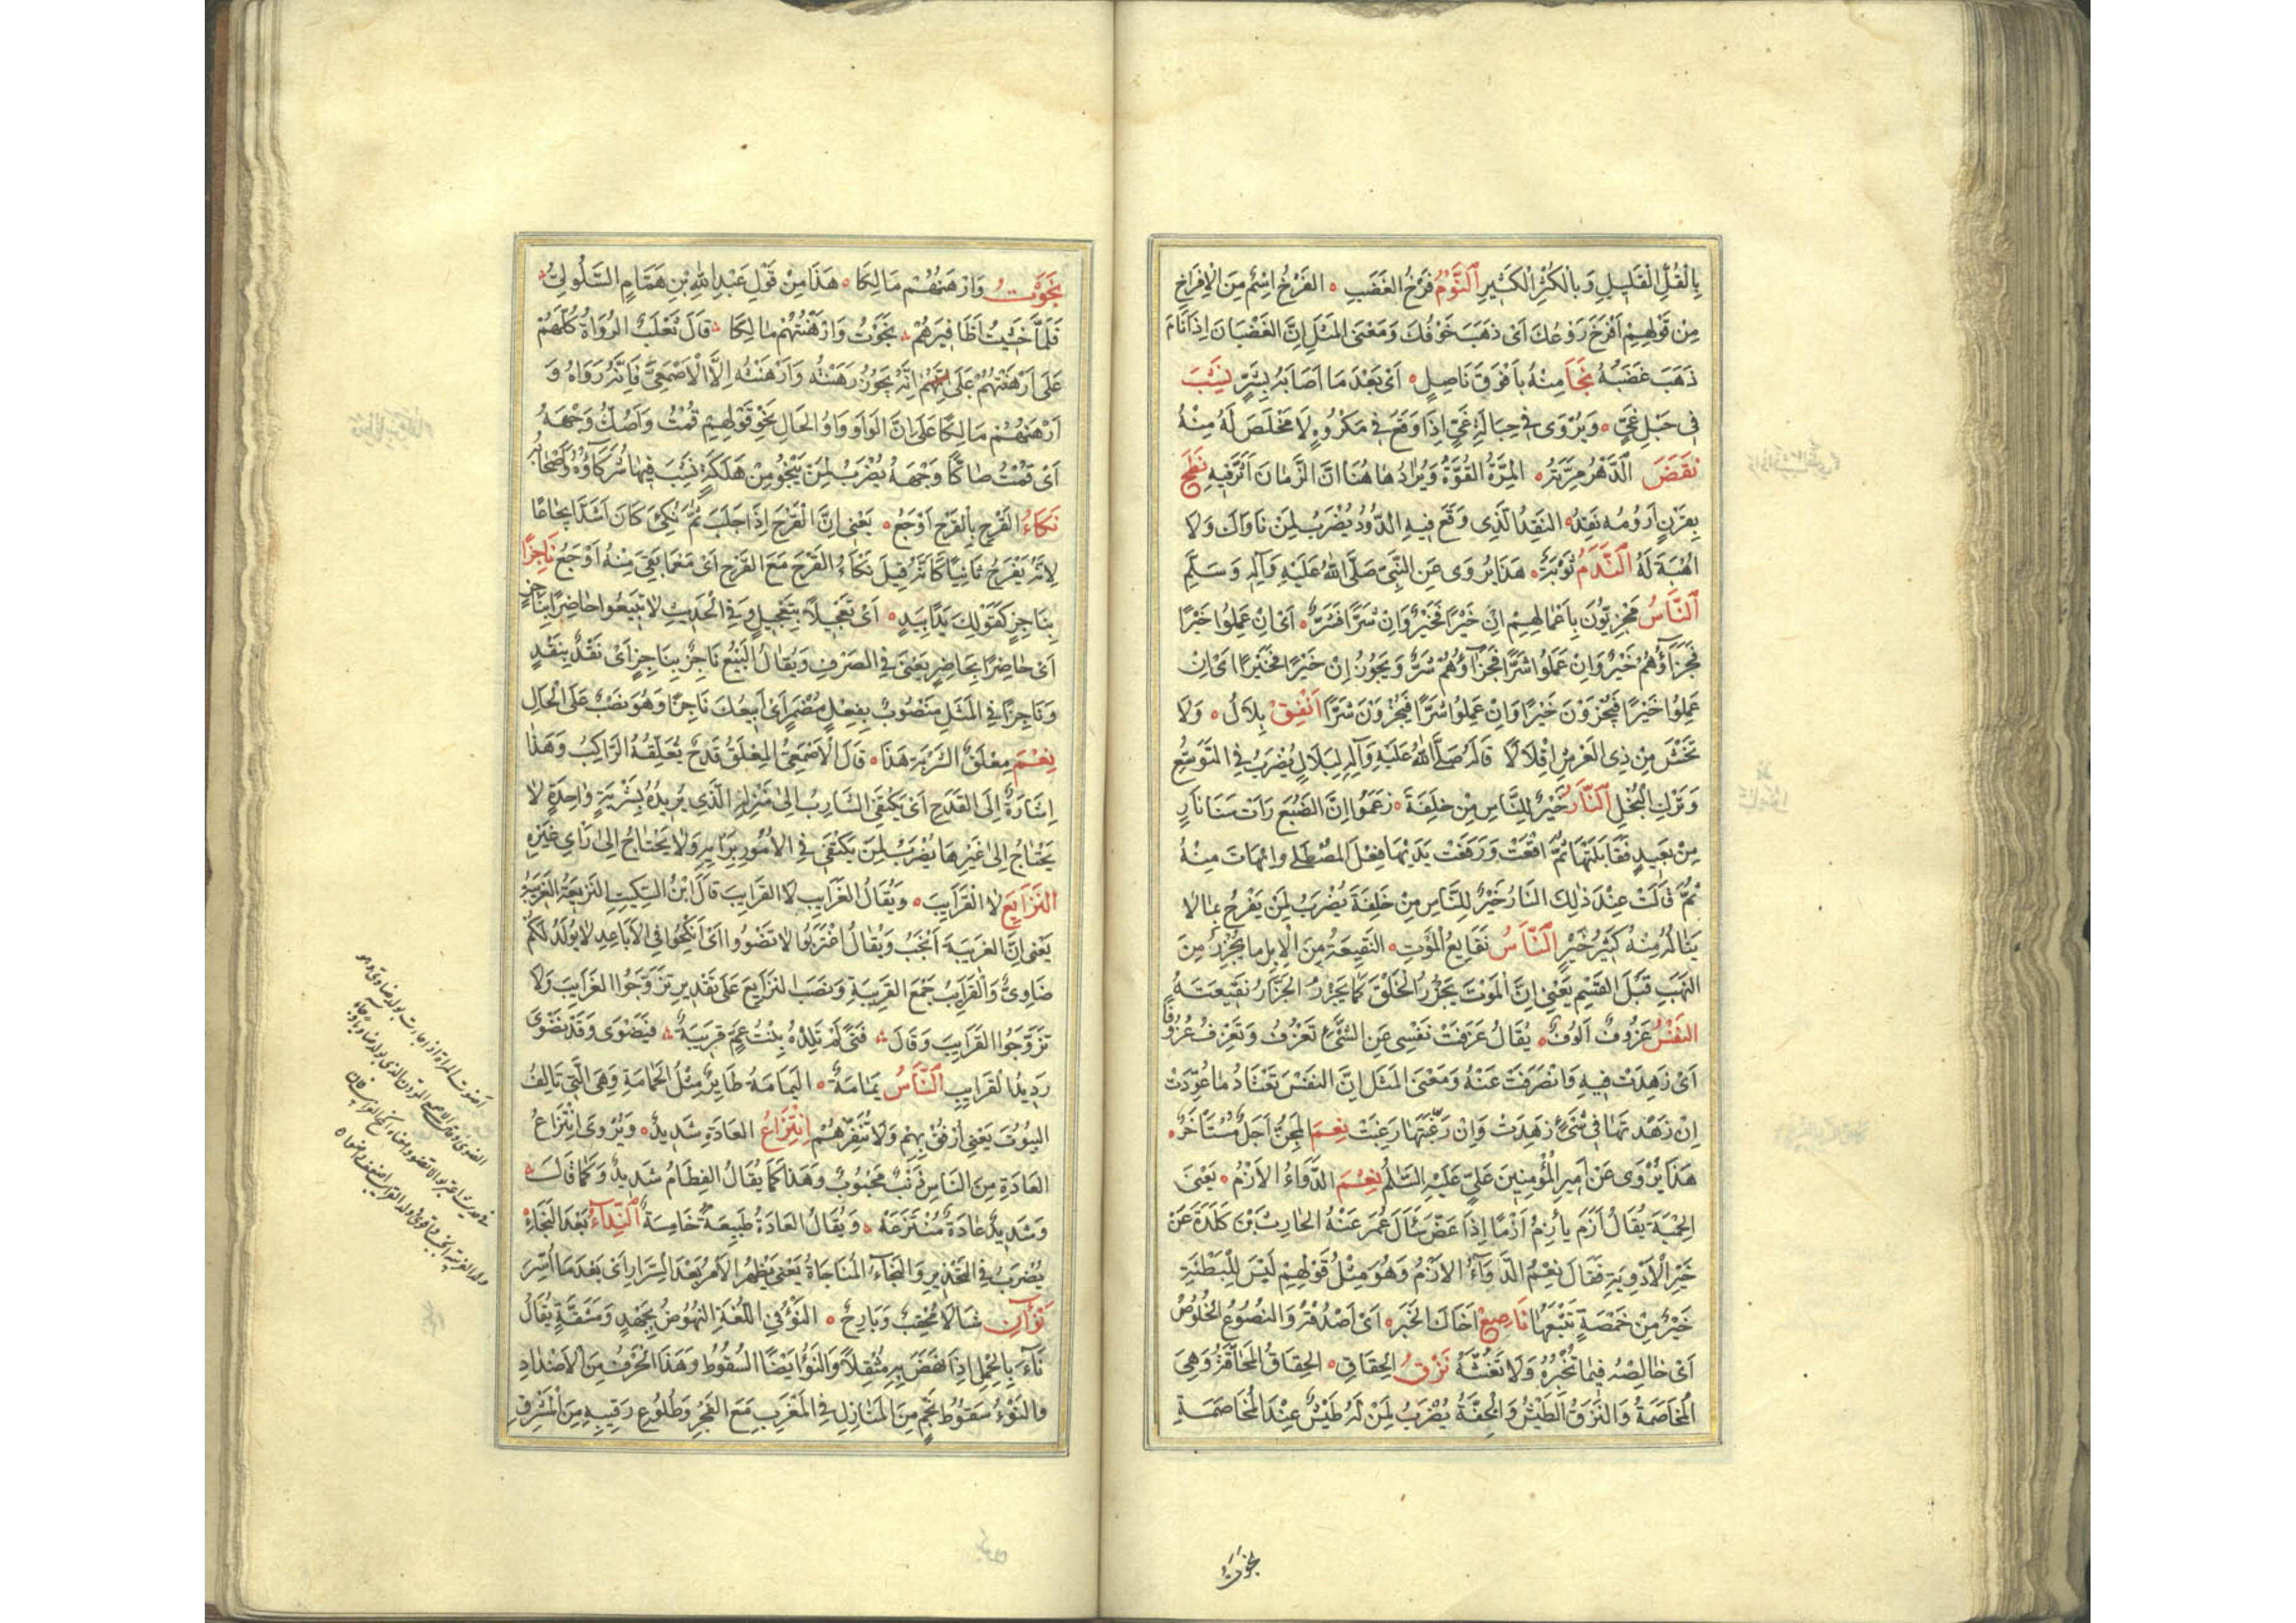 بِالْقُلِّ الْقَلِيلِ وَبِالْكُثْرِ الْكَثِيرِ اَلنَّوْمُ فَرْخُ الْغَضَبِ ه الفَرْخُ اِسْمٌ مِنَ الْاِفْرَاخِ
مِنْ قَوْلِهِمْ اَفْرَخَ رَوْعُكَ اَىْ ذَهَبَ خَوْفُكَ وَمَعْنَى الْمَثَلِ اِنَّ الغَضْبَانَ اِذَا نَامَ
ذَهَبَ غَضَبُهُ نَجَا مِنْهُ بِاَفْوَقَ نَاصِلٍ ه اَىْ بَعْدَ مَا اَصَابَهُ بِشَرٍّ نَشِبَ
فِى حَبْلِ غَىٍّ ه وَيُرْوَى فِى حِبَالَةِ غَىٍّ اِذَا وَقَعَ فِى مَكْرُوهٍ لَا مَخْلَصَ لَهُ مِنْهُ
نَقَضَ الدَّهْرُ مِرَّتَهُ ه المِرَّةُ القُوَّةُ وَيُرَادُ هَاهُنَا اَنَّ الزَّمَانَ اَثَّرَ فِيهِ نَطَحَ
بِقَرْنٍ اَرُومُهُ نَقِدٌ ه النَّقِدُ الَّذِى وَقَعَ فِيهِ الدُّودُ يُضْرَبُ لِمَنْ نَاوَاكَ وَلَا
اُهْبَةَ لَهُ اَلنَّدَمُ تَوْبَةٌ ه هَذَا يُرْوَى عَنِ النَّبِىِّ صَلَّى اللهُ عَلَيْهِ وَآلِهِ وَسَلَّمَ
اَلنَّاسُ مَجْزِيُّونَ بِاَعْمَالِهِمْ اِنْ خَيْرًا فَخَيْرٌ وَاِنْ شَرًّا فَشَرٌّ ه اَىْ اِنْ عَمِلُوا خَيْرًا
فَجَزَاؤُهُمْ خَيْرٌ وَاِنْ عَمِلُوا شَرًّا فَجَزَاؤُهُمْ شَرٌّ وَيَجُوزُ اِنْ خَيْرًا فَخَيْرًا اَىْ اِنْ
عَمِلُوا خَيْرًا فَيُجْزَوْنَ خَيْرًا وَاِنْ عَمِلُوا شَرًّا فَيُجْزَوْنَ شَرًّا اَنْفِقْ بِلَالُ ه وَلَا
تَخْشَ مِنْ ذِى العَرْشِ اِقْلَالًا قَالَهُ صَلَّى اللهُ عَلَيْهِ وَآلِهِ لِبِلَالٍ يُضْرَبُ فِى التَّوَسُّعِ
وَتَرْكِ الْبُخْلِ اَلنَّارُ خَيْرٌ لِلنَّاسِ مِنْ حَلِفَةَ ه زَعَمُوا اِنَّ الضَّبُعَ رَاَتْ سَنَا نَارٍ
مِنْ بَعِيدٍ فَقَابَلَتْهَا ثُمَّ اَقْعَتْ وَرَفَعَتْ يَدَيْهَا فِعْلَ الْمُصْطَلِى وَانْهَاتَ مِنْهُ
ثُمَّ قَالَتْ عِنْدَ ذٰلِكَ النَّارُ خَيْرٌ لِلنَّاسِ مِنْ حَلِفَةَ يُضْرَبُ لِمَنْ يَفْرَحُ بِمَا لَا
يَنَالُهُ مِنْهُ كَثِيرُ خَيْرٍ اَلنَّاسُ نَقَايِعُ الْمَوْتِ ه النَّقِيعَةُ مِنَ الْاِبِلِ مَا يُجْزَرُ مِنَ
النَّهْبِ قَبْلَ الْقَسْمِ يَعْنِى اِنَّ الْمَوْتَ يَجْزُرُ الْخَلْقَ كَمَا يَجْزُرُ الجَزَّارُ نَقِيعَتَهُ
النَّفْسُ عَزُوفٌ اَلُوفٌ ه يُقَالُ عَزَفَتْ نَفْسِى عَنِ الشَّىْءِ تَعْزُفُ وَتَعْزِفُ عُزُوفًا
اَىْ زَهِدَتْ فِيهِ وَانْصَرَفَتْ عَنْهُ وَمَعْنَى الْمَثَلِ اِنَّ النَّفْسَ تَعْتَادُ مَا عُوِّدَتْ
اِنْ زَهَّدْتَهَا فِى شَىْءٍ زَهِدَتْ وَاِنْ رَغَّبْتَهَا رَغِبَتْ نِعْمَ الْمِجَنُّ اَجَلٌ مُسْتَأْخَرٌ ه
هَذَا يُرْوَى عَنْ اَمِيرِ الْمُؤْمِنِينَ عَلِىٍّ عَلَيْهِ السَّلَمُ نِعْمَ الدَّوَاءُ الْاَزْمُ ه يَعْنِى
الحِمْيَةَ يُقَالُ اَزَمَ يَأْزِمُ اَزْمًا اِذَا عَضَّ سَأَلَ عُمَرُ عَنْهُ الحَارِثَ بْنَ كَلَدَةَ عَنْ
خَيْرِ الْاَدْوِيَةِ فَقَالَ نِعْمَ الدَّوَاءُ الْاَزْمُ وَهُوَ مِثْلُ قَوْلِهِمْ لَيْسَ لِلْبِطْنَةِ
خَيْرٌ مِنْ خَمْصَةٍ تَتْبَعُهَا نَاصِعْ اَخَاكَ الخَبَرَ ه اَىْ اَصْدُقْهُ وَالنُّصُوعُ الخُلُوصُ
اَىْ خَالِصْهُ فِيمَا تُخْبِرُهُ وَلَا تَغُشَّهُ نَزْقُ الحِقَاقِ ه الحِقَاقُ الْمُحَاقَّةُ وَهِىَ
الْمُخَاصَمَةُ وَالنَّزَقُ الطَّيْشُ وَالْخِفَّةُ يُضْرَبُ لِمَنْ لَهُ طَيْشٌ عِنْدَ الْمُخَاصَمَةِ
نجوت
نَجَوْتُ وَاَرْهَنُهُمْ مَالِكَا ه هَذَا مِنْ قَوْلِ عَبْدِ اللهِ بْنِ هَمَّامٍ السَّلُولِىِّ
فَلَمَّا خَشِيتُ اَظَافِيرَهُمْ نَجَوْتُ وَاَرْهَنْتُهُمْ مَالِكَا قَالَ ثَعْلَبٌ الرُّوَاةُ كُلُّهُمْ
عَلَى اَرْهَنْتُهُمْ عَلَى اَنَّهُ يَجُوزُ رَهَنْتُهُ وَاَرْهَنْتُهُ اِلَّا الْاَصْمَعِىَّ فَاِنَّهُ رَوَاهُ وَ
اَرْهَنُهُمْ مَالِكًا عَلَى اَنَّ الْوَاوَ وَاوُ الحَالِ نَحْوَ قَوْلِهِمْ قُمْتُ وَاَصُكُّ وَجْهَهُ
اَىْ قُمْتُ صَاكًّا وَجْهَهُ يُضْرَبُ لِمَنْ يَنْجُو مِنْ هَلَكَةٍ نَشِبَ فِيهَا شُرَكَاؤُهُ وَاَصْحَابُهُ
نَكَاءُ القَرْحِ بِالْقَرْحِ اَوْجَعُ ه يَعْنِى اِنَّ الْقَرْحَ اِذَا جَلَبَ ثُمَّ نُكِئَ كَانَ اَشَدَّ اِيجَاعًا
لِاَنَّهُ يَقْرَحُ ثَانِيًا كَاَنَّهُ قِيلَ نَكَاءُ القَرْحِ مَعَ القَرْحِ اَىْ مَعَ مَا بَقِىَ مِنْهُ اَوْجَعُ نَاجِزًا
بِنَاجِزٍ كَقَوْلِكَ يَدًا بِيَدٍ ه اَىْ تَعْجِيلًا بِتَعْجِيلٍ وَفِى الْحَدِيثِ لَا تَبِيعُوا حَاضِرًا بِنَاجِزٍ
اَىْ حَاضِرًا بِحَاضِرٍ يَعْنِى فِى الصَّرْفِ وَيُقَالُ الْبَيْعُ نَاجِزٌ بِنَاجِزٍ اَىْ نَقْدٌ بِنَقْدٍ
وَنَاجِزًا فِى الْمَثَلِ مَنْصُوبٌ بِفِعْلٍ مُضْمَرٍ اَىْ اَبِيعُكَ نَاجِزًا وَهُوَ نَصْبٌ عَلَى الْحَالِ
نِعْمَ مِعْلَقُ الشَّرْبَةِ هَذَا ه قَالَ الْاَصْمَعِىُّ الْمِعْلَقُ قَدَحٌ يُعَلِّقُهُ الرَّاكِبُ وَهَذَا
اِشَارَةٌ اِلَى القَدَحِ اَىْ يَكْتَفِى الشَّارِبُ اِلَى مَنْزِلِهِ الَّذِى يُرِيدُهُ بِشَرْبَةٍ وَاحِدَةٍ لَا
يَحْتَاجُ اِلَى غَيْرِهَا يُضْرَبُ لِمَنْ يَكْتَفِى فِى الْاُمُورِ بِرَأْيِهِ وَلَا يَحْتَاجُ اِلَى رَاىِ غَيْرِهِ
النَّزَايِعَ لَا الْقَرَايِبَ ه وَيُقَالُ الغَرَايِبَ لَا القَرَايِبَ قَالَ ابْنُ السِّكِّيتِ النَّزِيعَةُ الغَرِيبَةُ
يَعْنِى اِنَّ الغَرِيبَةَ اَنْجَبُ وَيُقَالُ اغْتَرِبُوا لَا تَضْوُوا اَىْ اَنْكِحُوا فِى الْاَبَاعِدِ لَا يُولَدُ لَكُمْ
ضَاوِىٌّ وَالْقَرَايِبُ جَمْعُ القَرِيبَةِ وَنَصَبَ النَّزَايِعَ عَلَى تَقْدِيرِ تَزَوَّجُوا الغَرَايِبَ وَلَا
تَزَوَّجُوا القَرَايِبَ وَقَالَ فَتًى لَمْ تَلِدْهُ بِنْتُ عَمٍّ قَرِيبَةٌ فَيَضْوَى وَقَدْ يَضْوَى
رَدِيدُ الْقَرَايِبِ اَلنَّاسُ يَمَامَةٌ ه اليَمَامَةُ طَايِرٌ مِثْلُ الحَمَامَةِ وَهِىَ الَّتِى تَالَفُ
البُيُوتَ يَعْنِى اُرْفُقْ بِهِمْ وَلَا تُنَفِّرْهُمْ اِنْتِزَاعُ العَادَةِ شَدِيدٌ ه وَيُرْوَى اِنْتِزَاعُ
العَادَةِ مِنَ النَّاسِ ذَنْبٌ مَحْسُوبٌ وَهَذَا كَمَا يُقَالُ الفِطَامُ شَدِيدٌ وَكَمَا قَالَ
وَشَدِيدٌ عَادَةٌ مُنْتَزَعَهْ ه وَيُقَالُ العَادَةُ طَبِيعَةٌ خَامِسَةٌ اَلنِّدَاءُ بَعْدَ النِّجَاءِ
يُضْرَبُ فِى التَّحْذِيرِ وَالنِّجَاءُ الْمُنَاجَاةُ يَعْنِى يَظْهَرُ الْاَمْرُ بَعْدَ السِّرَارِ اَىْ بَعْدَ مَا اُسِرَّ
نَوْآنِ شَالَا مُحْقِبٌ وَبَارِحٌ ه النَّوْءُ فِى اللُّغَةِ النُّهُوضُ بِجَهْدٍ وَمَشَقَّةٍ يُقَالُ
نَاءَ بِالْحِمْلِ اِذَا نَهَضَ بِهِ مُثْقَلًا وَالنَّوْءُ اَيْضًا السُّقُوطُ وَهَذَا الْحَرْفُ مِنَ الْاَضْدَادِ
وَالنَّوْءُ سُقُوطُ نَجْمٍ مِنَ الْمَنَازِلِ فِى الْمَغْرِبِ مَعَ الفَجْرِ وَطُلُوعُ رَقِيبِهِ مِنَ الْمَشْرِقِ